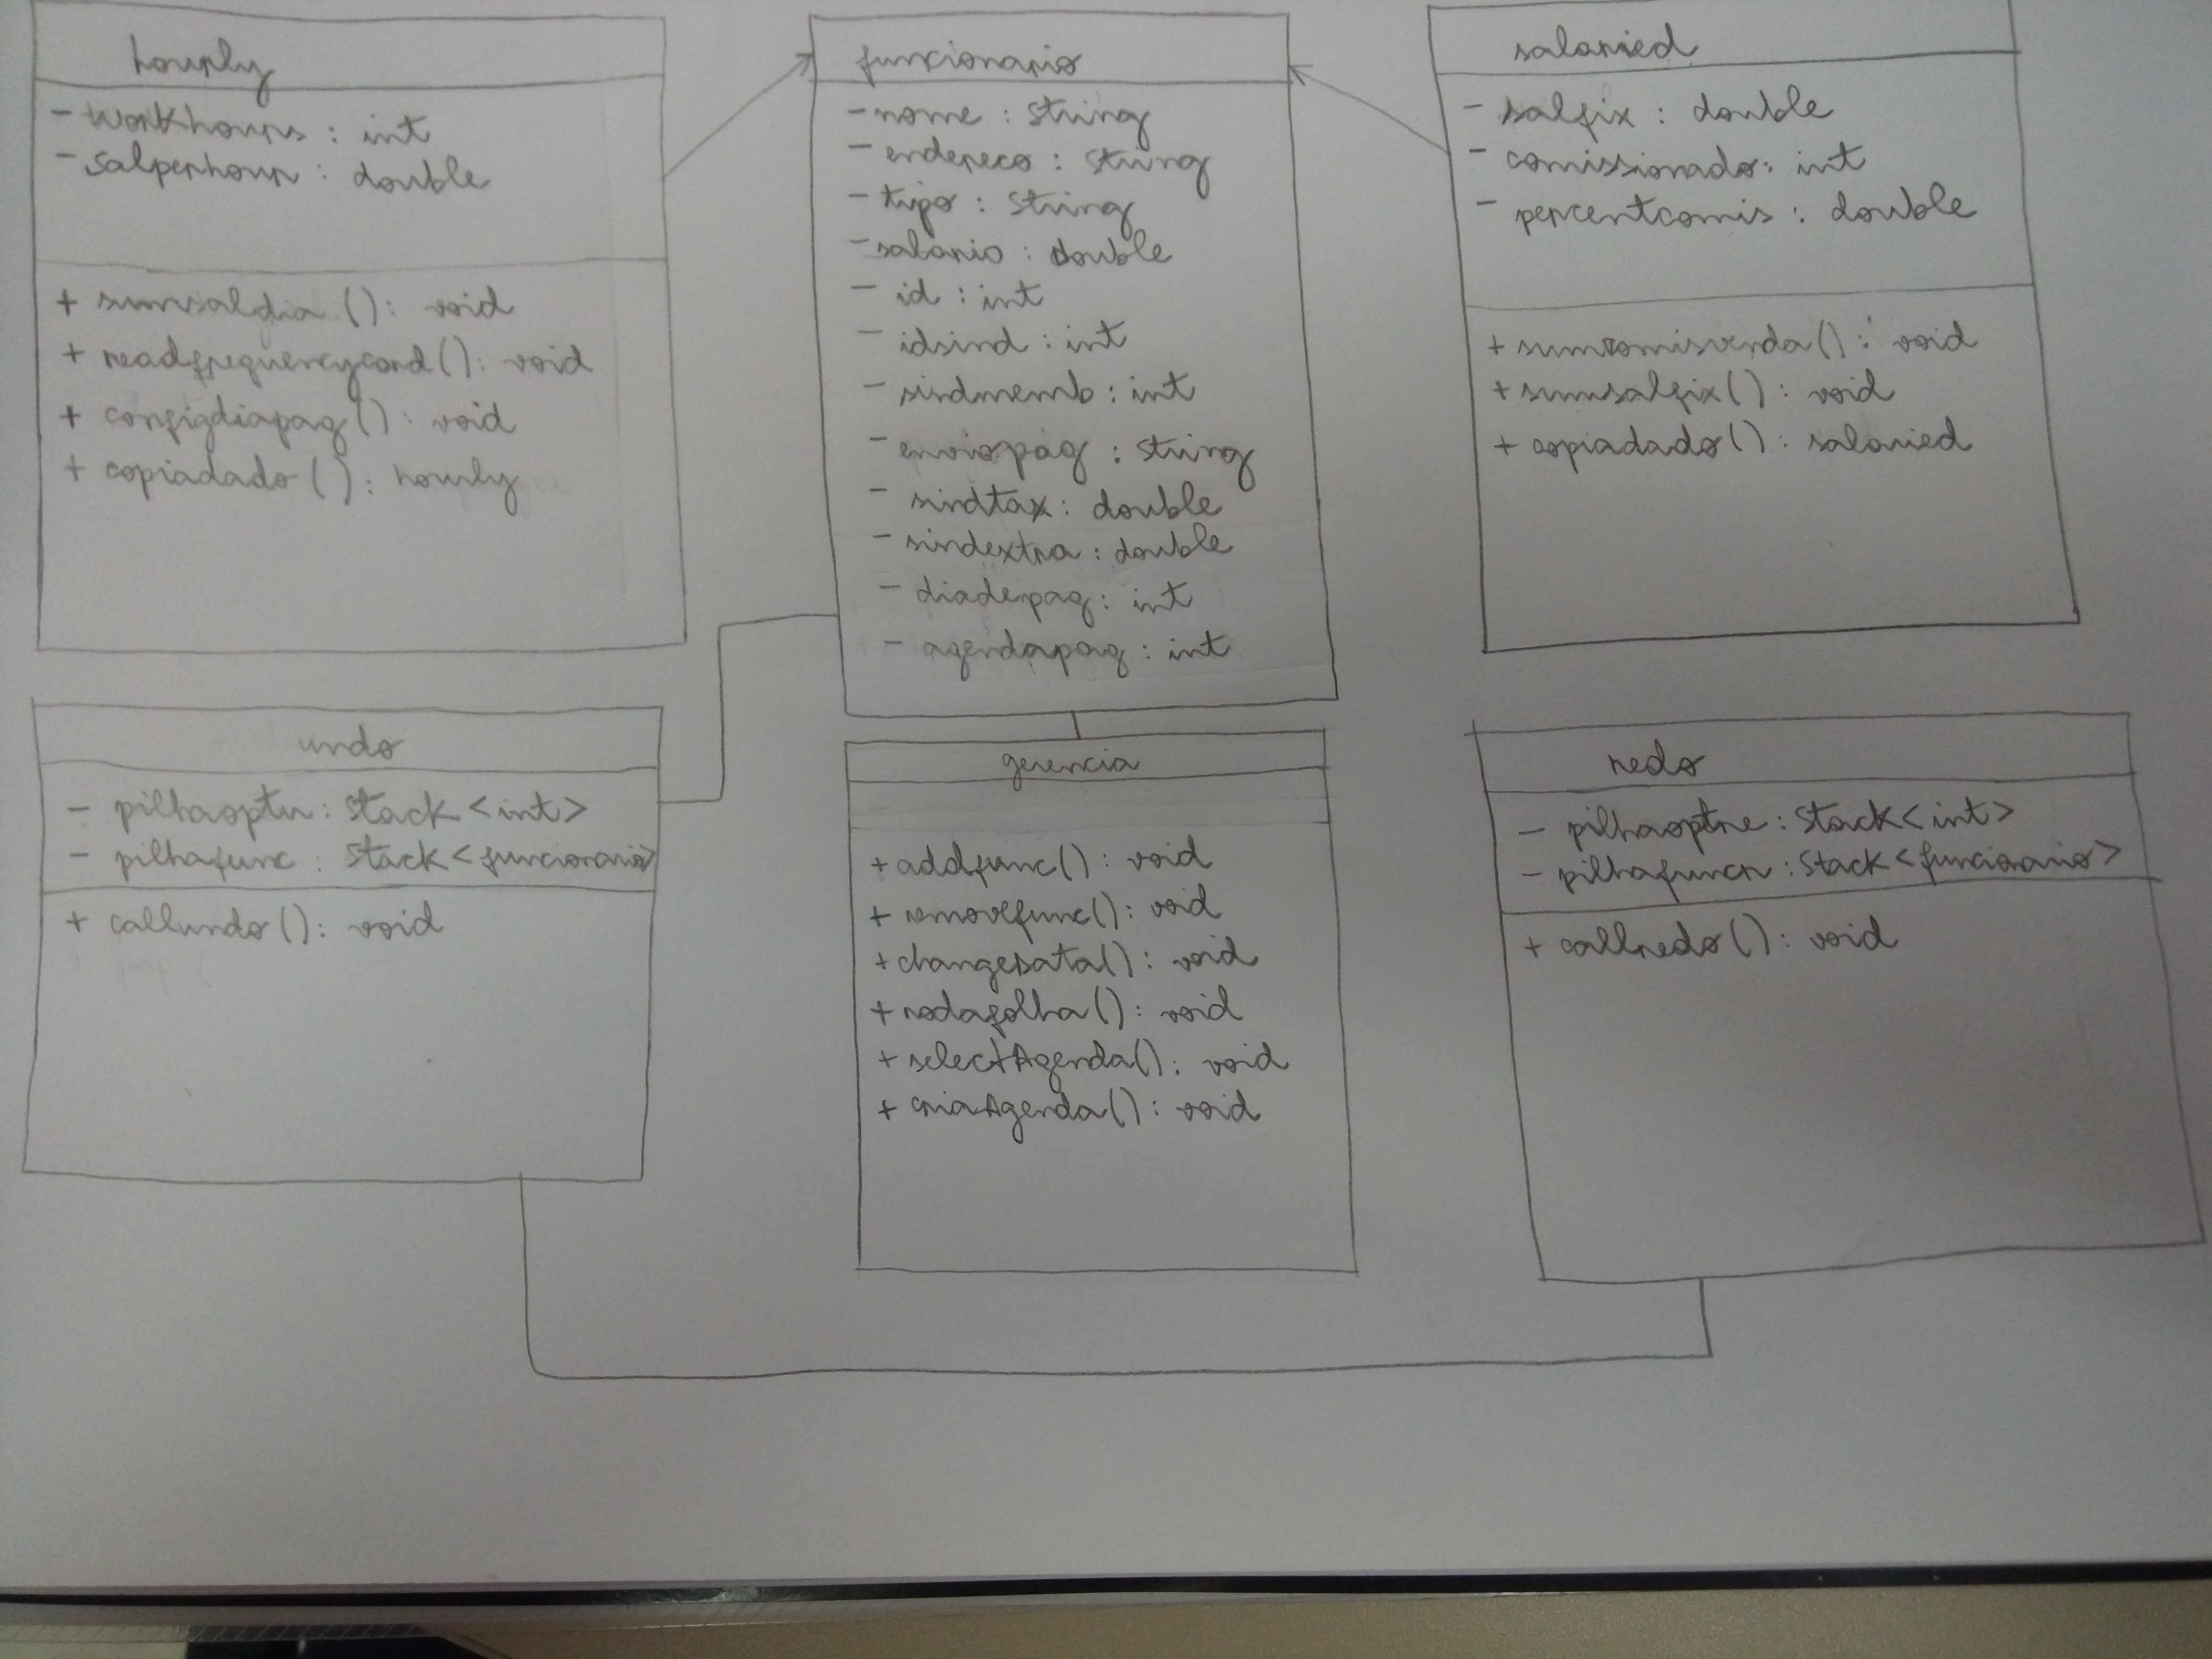 hourly
- workhours : int
- salperhour : double
+ sumsaldia () : void
+ readfrequencycard() : void
+ configdiapag() : void
+ copiadado () : hourly
funcionario
- nome : String
- endereco : String
- tipo : String
- salario : double
- id : int
- idsind : int
- sindmemb : int
- enviopag : String
- sindtax : double
- sindextra : double
- diadepag : int
- agendapag : int
salaried
- salfix : double
- comissionado : int
- percentcomis : double
+ sumcomisvenda() : void
+ sumsalfix() : void
+ copiadado() : salaried
undo
- pilhaoptu : Stack <int>
- pilhafunc : Stack <funcionario>
+ callundo() : void
gerencia
+ addfunc() : void
+ removefunc() : void
+ changedata() : void
+ rodafolha() : void
+ selectAgenda() : void
+ criaAgenda() : void
redo
- pilhaoptre : Stack <int>
- pilhafuncr : Stack <funcionario>
+ callredo() : void